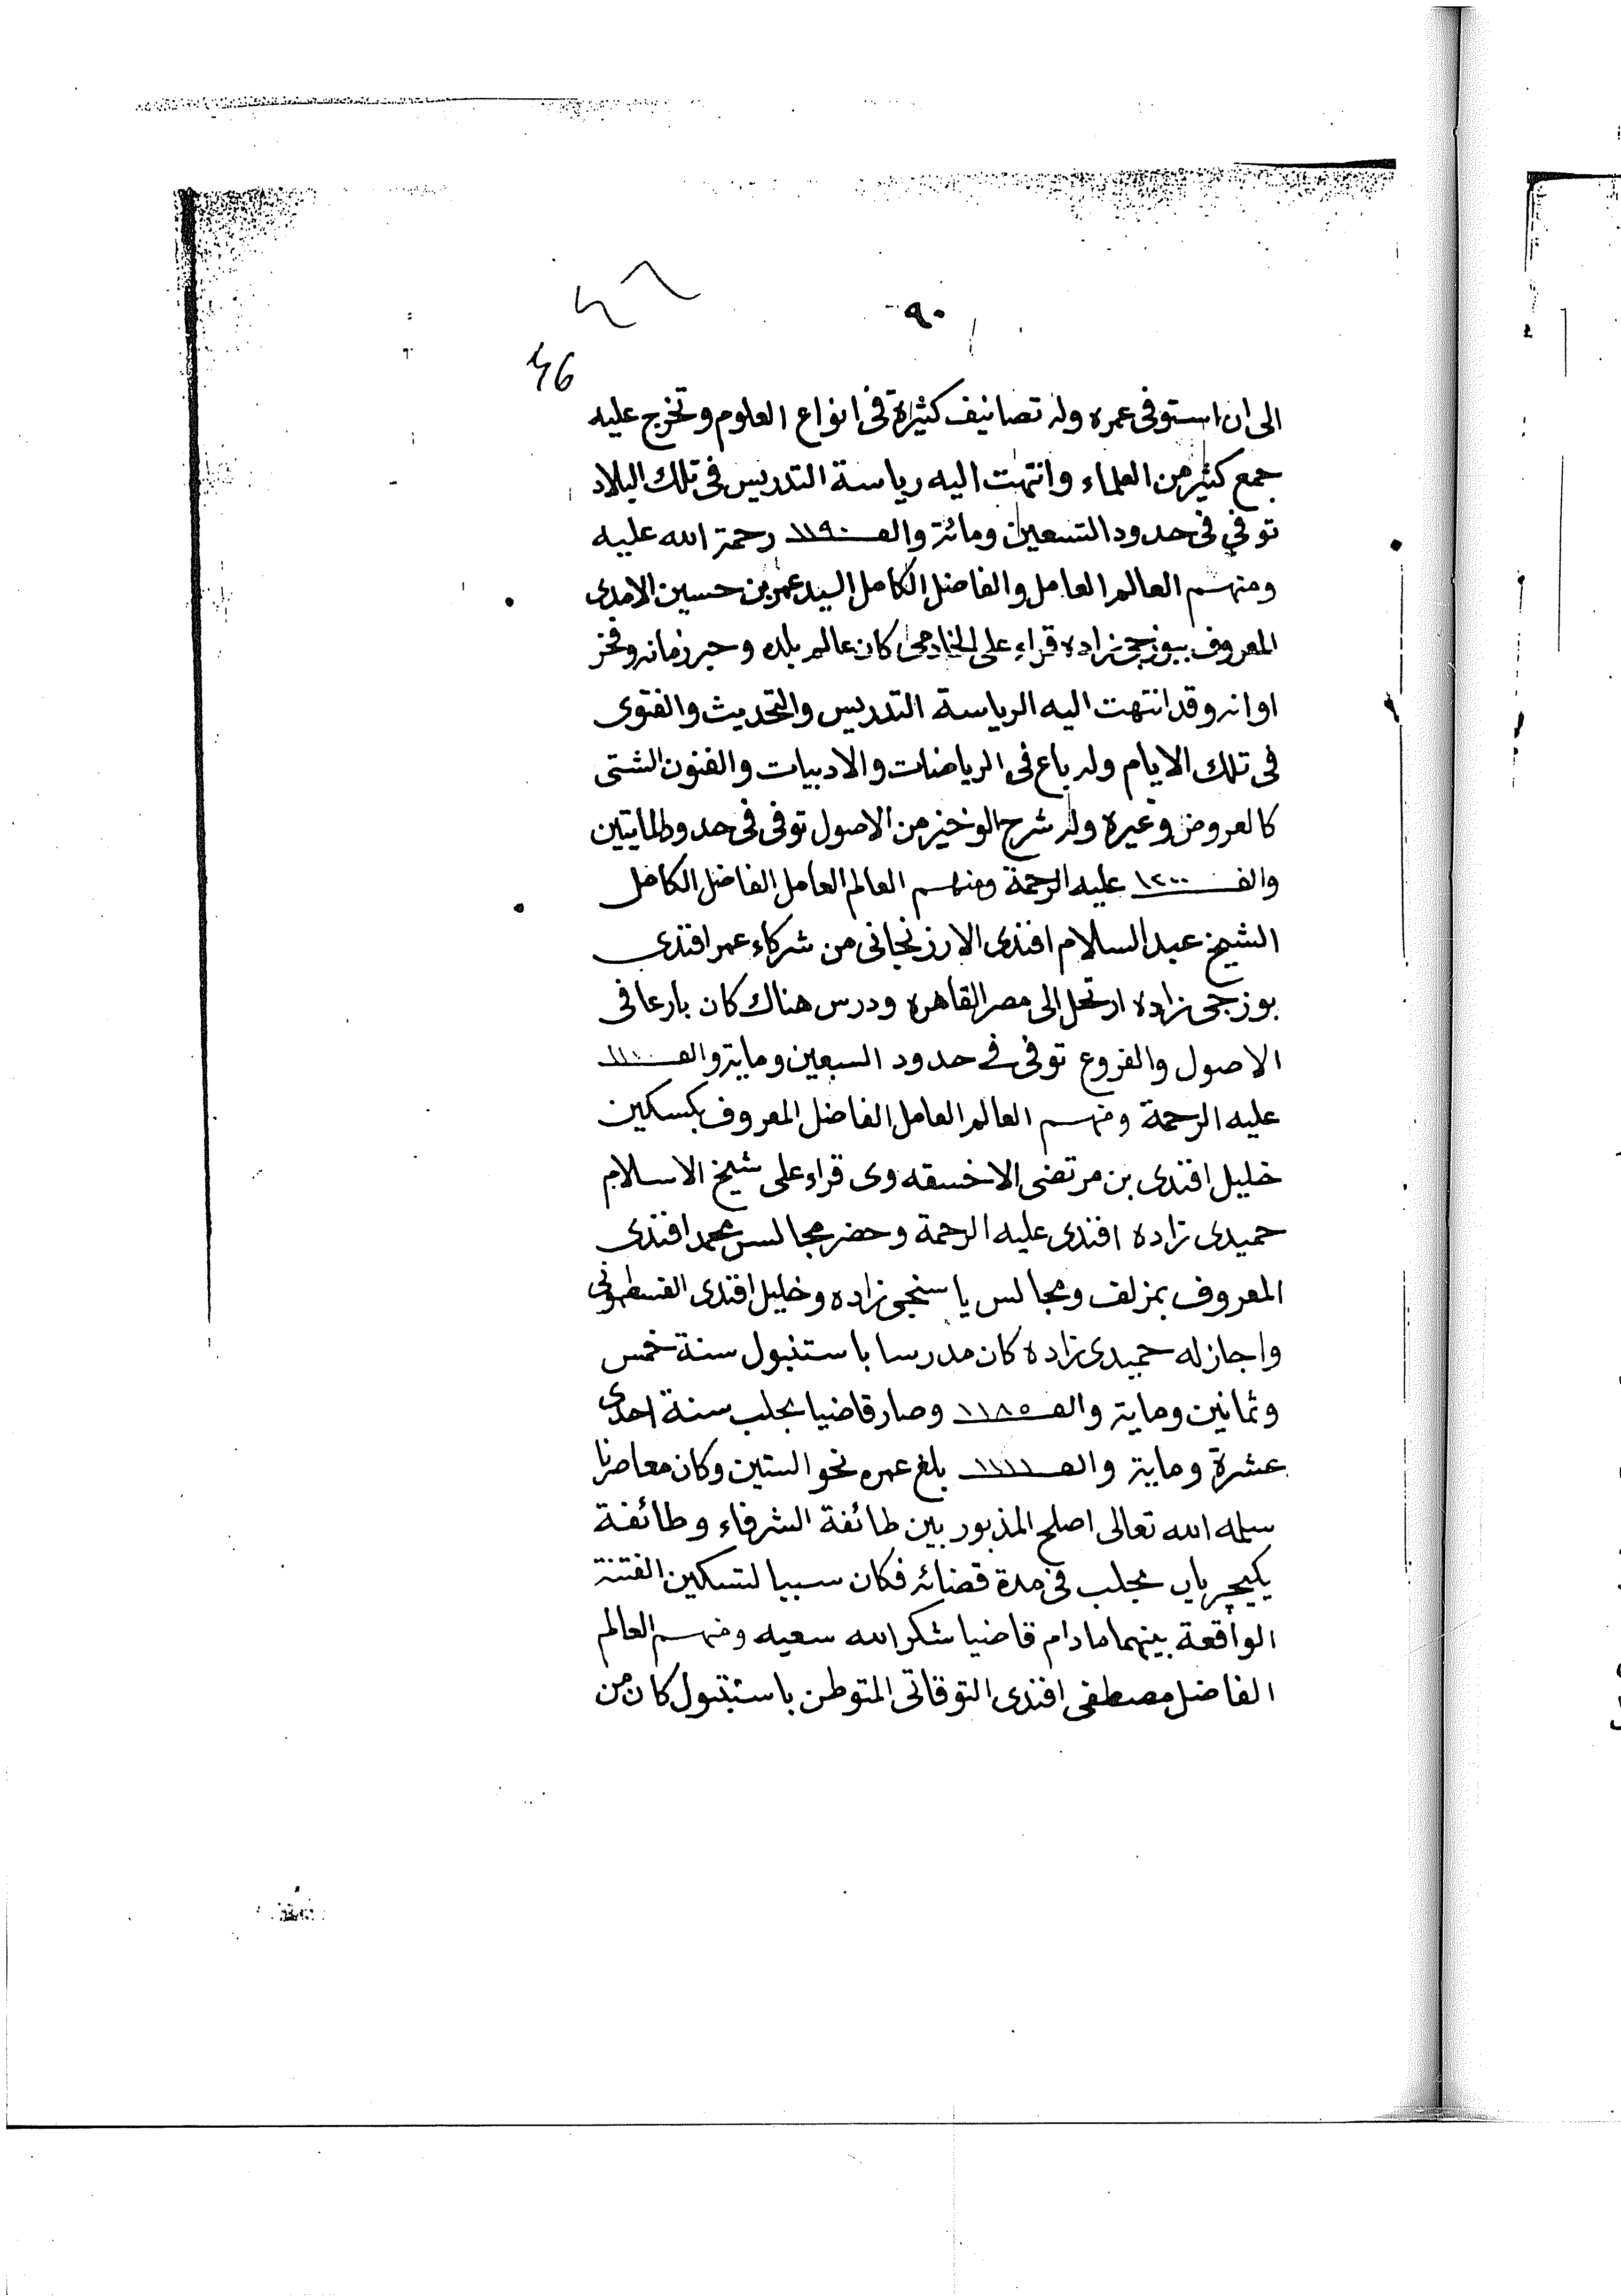 ٩٠
46
الى ان استوفى عمره وله تصانيف كثيرة فى انواع العلوم وتخرج عليه
جمع كثير من العلماء وانتهت اليه رياسة التدريس فى تلك البلاد
توفي فى حدود التسعين ومائة والف ١١٩٠ رحمة الله عليه
ومنهم العالم العامل والفاضل الكامل السيد عمر بن حسين الامدى
المعروف ببوزجى زاده قراء على الخادمى كان عالم بلده وحبر زمانه وفخر
اوانه وقد انتهت اليه الرياسة التدريس والتحديث والفتوى
فى تلك الايام وله باع فى الرياضات والادبيات والفنون الشتى
كالعروض وغيره وله شرح الوخيز من الاصول توفى فى حدود المايتين
والف ١٢٠٠ عليه الرحمة ومنهم العالم العامل الفاضل الكامل
الشيخ عبد السلام افندى الارزنجانى من شركاء عمر افندى
بوزجى زاده ارتحل الى مصر القاهره ودرس هناك كان بارعا فى
الاصول والفروع توفى فى حدود السبعين وماية والف
عليه الرحمة ومنهم العالم العامل الفاضل المعروف بكسكين
خليل افندى بن مرتضى الاخسقه وى قراء على شيخ الاسلام
حميدى زاده افندى عليه الرحمة وحضر مجالس محمد افندى
المعروف بمزلف ومجالس ياسنجى زاده وخليل افندى القسطمونى
واجاز له حميدى زاده كان مدرسا باستنبول سنة خمس
وثمانين وماية والف ١١٨٥ وصار قاضيا بحلب سنة احدى
عشرة وماية والف بلغ عمره نحو الستين وكان معاصرنا
سلمه الله تعالى اصلح المذبور بين طائفة الشرفاء وطائفة
يكيچريان بحلب فى مدة قضائه فكان سببا لتسكين الفتنة
الواقعة بينهما مادام قاضيا شكر الله سعيه ومنهم العالم
الفاضل مصطفى افندى التوقاتى المتوطن باستنبول كان من